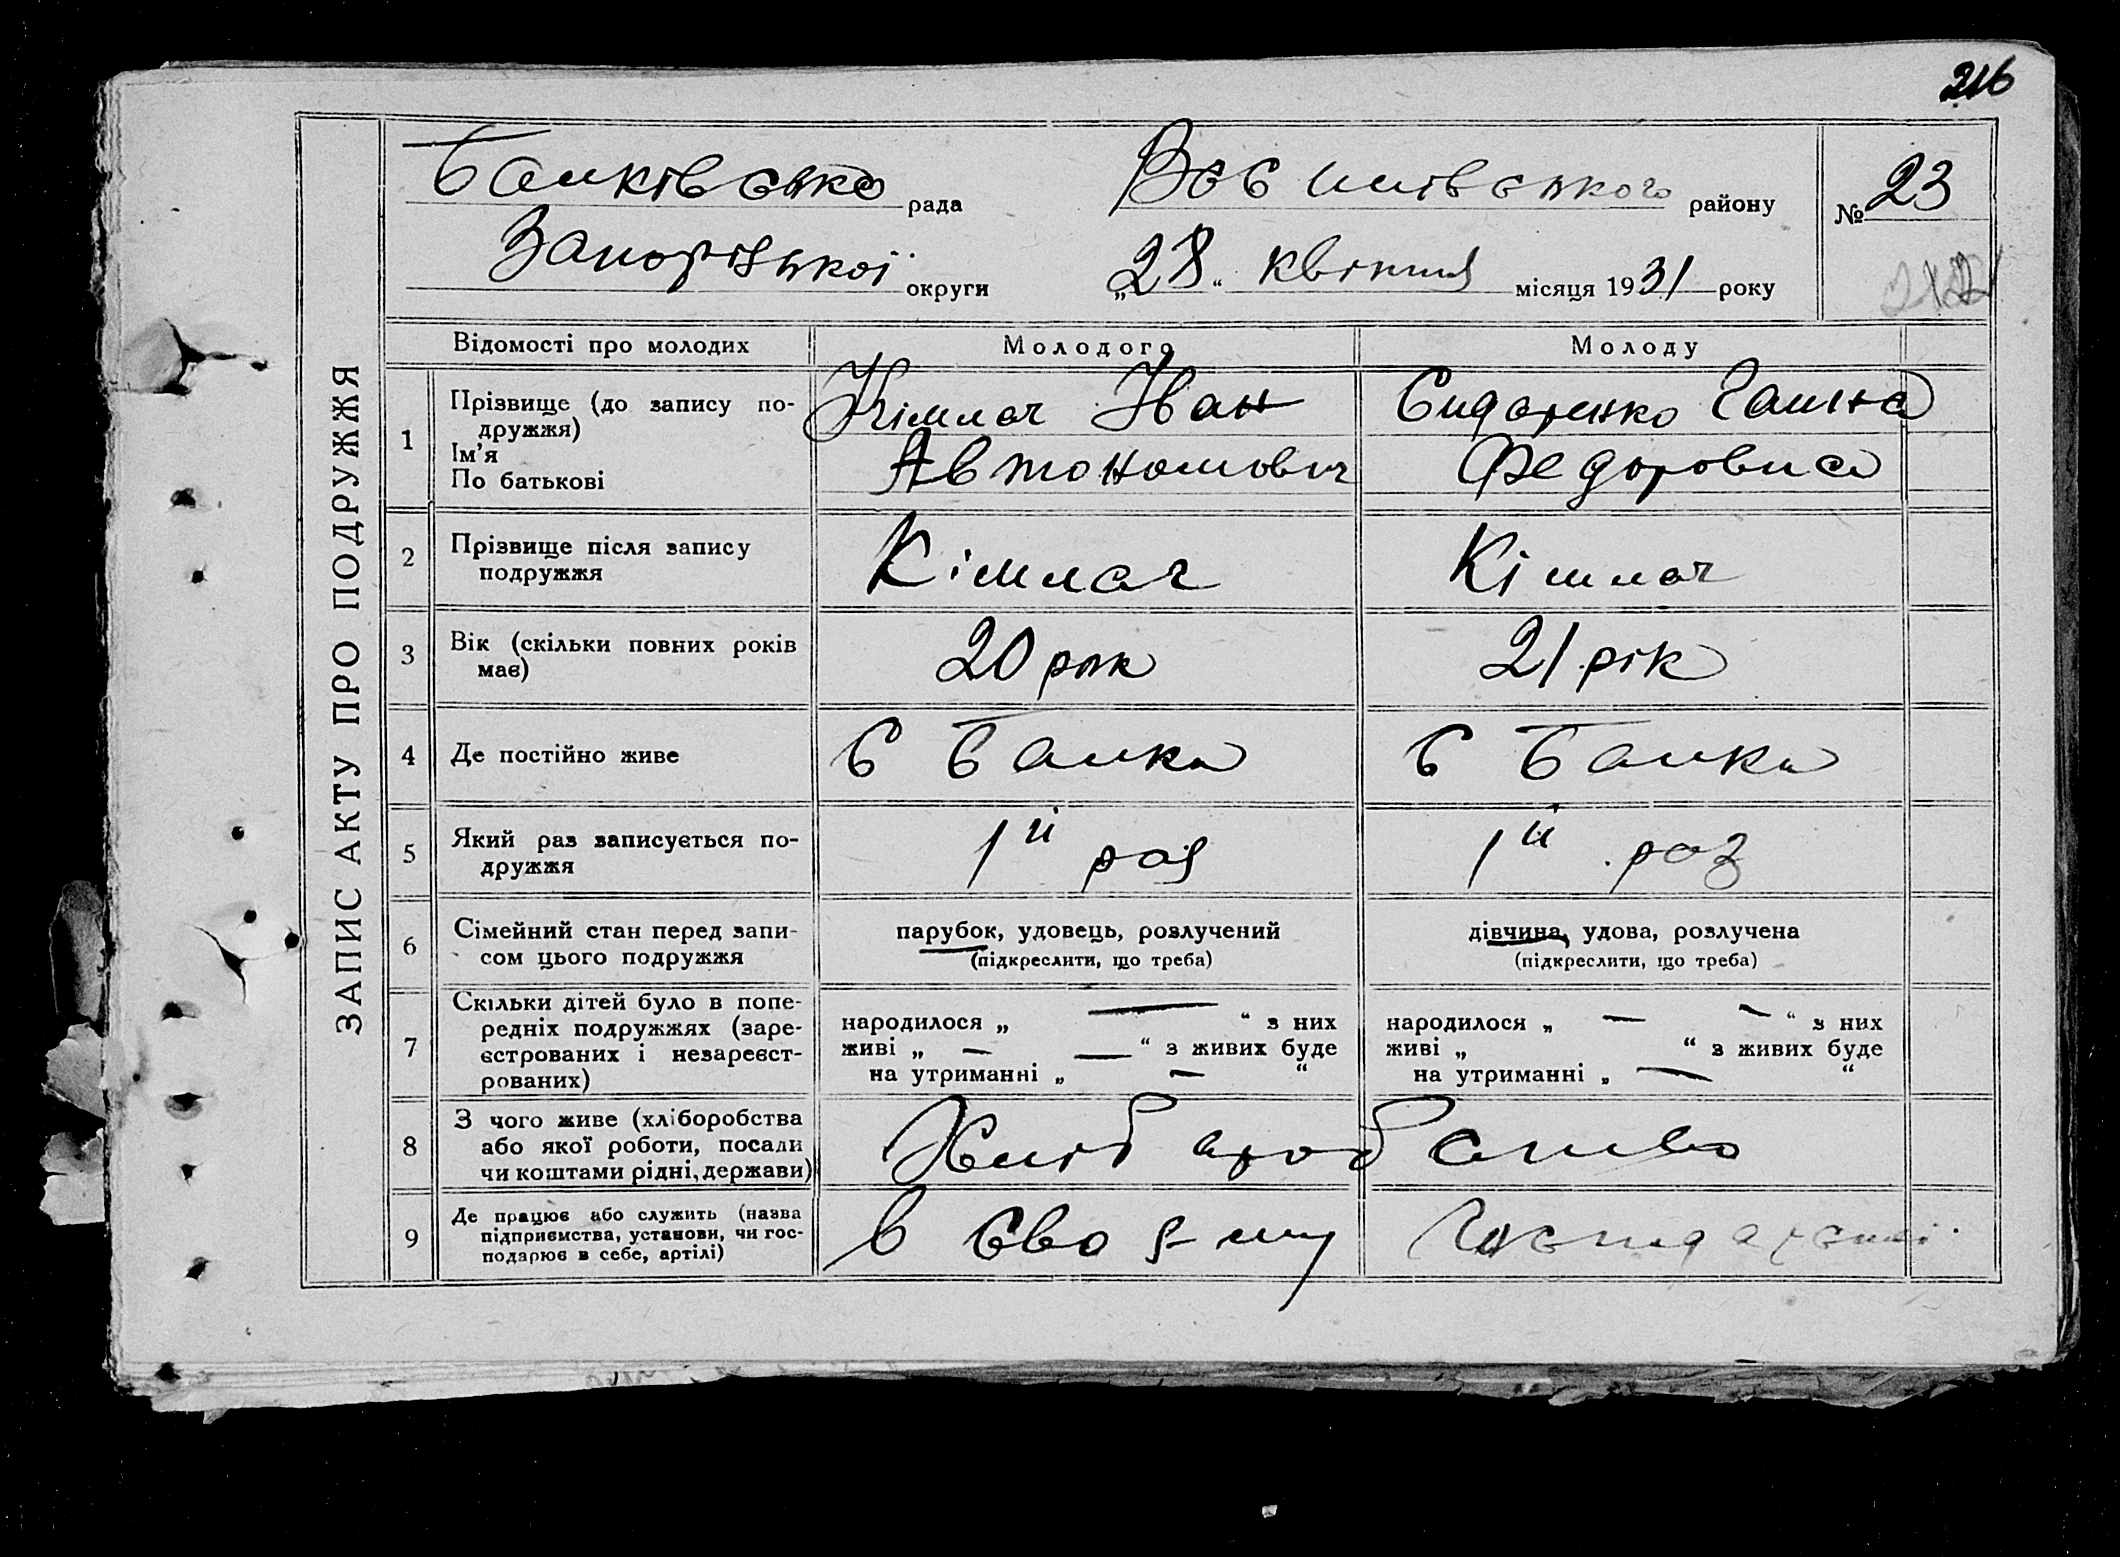 216
Балківська рада Василівського району № 23
Запорізької округи „28“ квітня місяця 1931 року
ЗАПИС АКТУ ПРО ПОДРУЖЖЯ
Відомості про молодих Молодого Молоду
1 Прізвище (до запису по-
дружжя)
Ім’я
По батькові
Кімлач Іван
Автономович
Сидаренко Галина
Федоровна
2 Прізвище після запису
подружжя
Кімлач Кімлач
3 Вік (скільки повних років
має)
20 рок 21 рік
4 Де постійно живе С Балка С Балка
5 Який раз записується по-
дружжя
1й раз 1й раз
6 Сімейний стан перед запи-
сом цього подружжя
парубок, удовець, розлучений
(підкреслити, що треба)
дівчина, удова, розлучена
(підкреслити, що треба)
7 Скільки дітей було в попе-
редніх подружжях (заре-
єстрованих і незареєст-
рованих)
народилося „ — “ з них
живі „ — — “ з живих буде
на утриманні „ — “
народилося „ — — “ з них
живі „ “ з живих буде
на утриманні „ — “
8 З чого живе (хліборобства
або якої роботи, посади
чи коштами рідні, держави)
Хліб аробство
9 Де працює або служить (назва
підприємства, установи, чи гос-
подарює в себе, артілі)
в